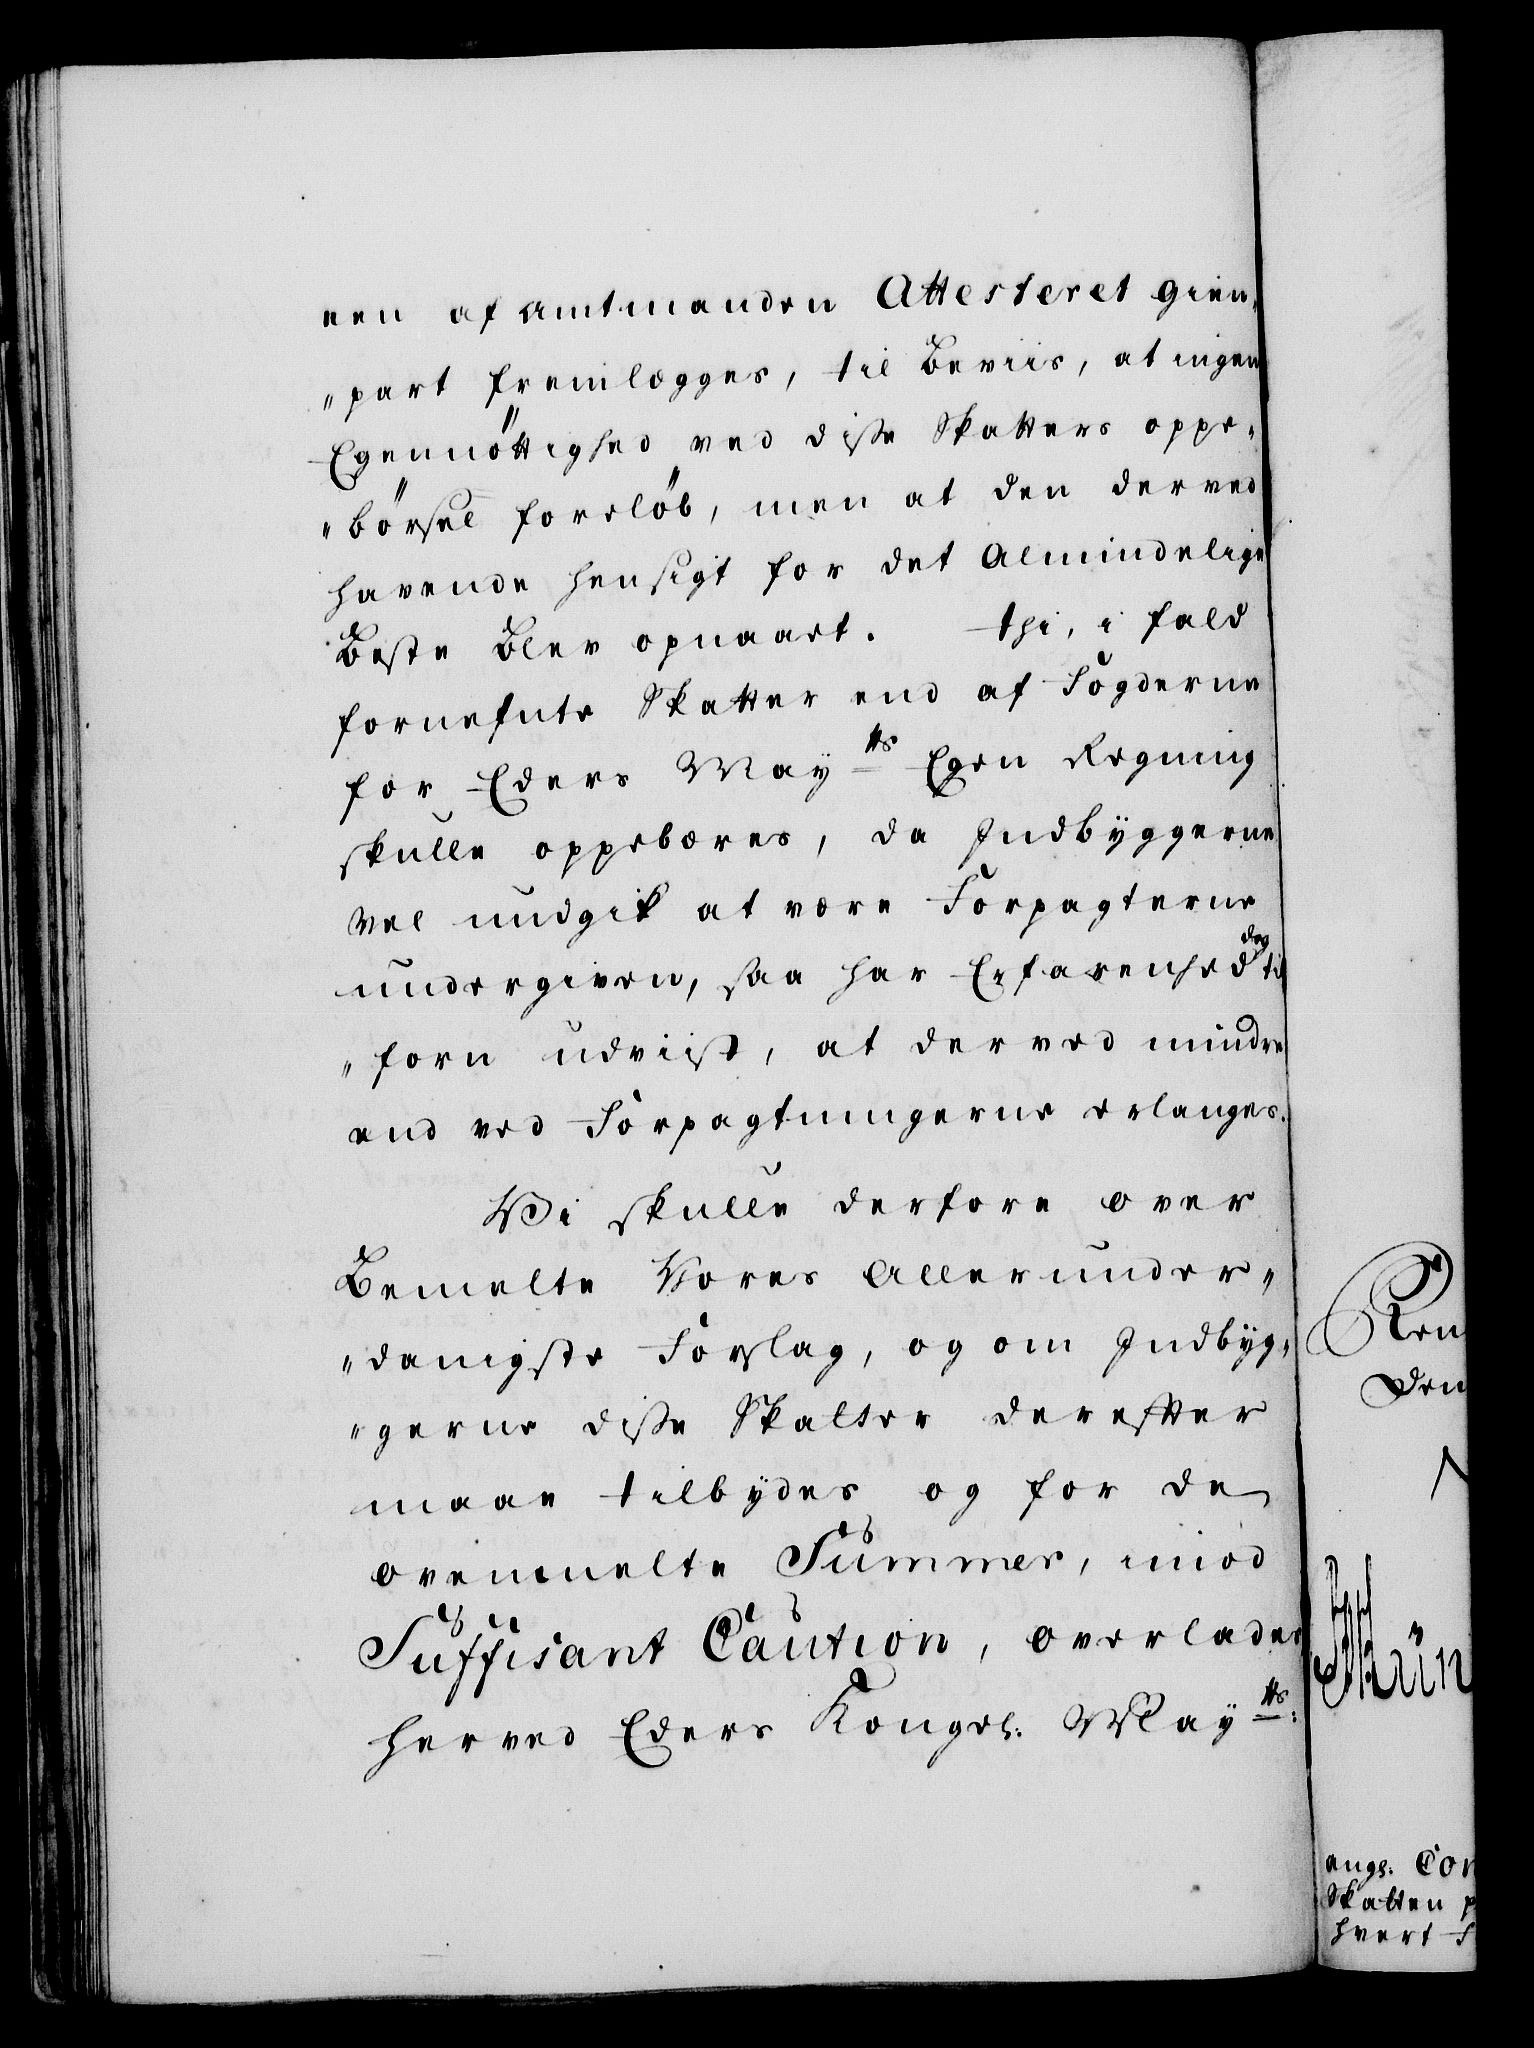 een af Amtmanden Attesteret Gien„
„part fremlægges, til Beviis, at ingen
Egennöttighed ved disse Skatters oppe„
„börsel foreløb, men at den derved
havende hensigt for det Almindelige
Beste Blev opnaaet. thi, i fald
fornefnte Skatter end af Fogderne
for Eders Mayts Egen Regning
skulle oppebæres, da Indbyggerne
vel undgik at være Forpagterne
undergiven, saa har Erfarenhed dog til
„forn udviist, at derved mindre
end ved Forpagtningerne erlanges.
Vi skulle derfore over
Bemelte Vores Allerunder„
„danigste Forslag, og om Indbyg„
„gerne disse Skatter derefter
maae tilbydes og for de
ovenmelte Summer, imod
Suffisant Caution, overlades
herved Eders Kongel. Mayts:
Ren
Den
engl. Con
Skatten p
hvert F